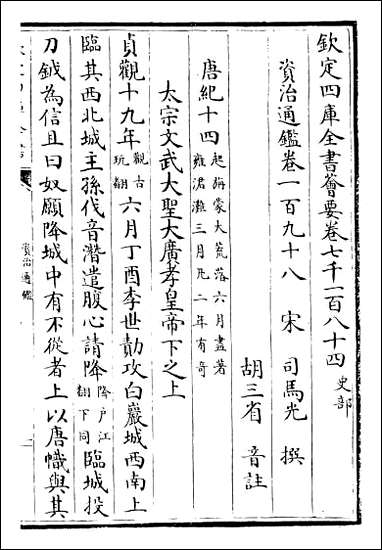 欽定四庫全書薈要卷七千一百八十四 史部
資治通鑑卷一百九十八
宋 司馬光 撰
胡三省 音註
唐紀十四 起旃蒙大荒落六月盡著雍涒灘三月凡二年有奇
太宗文武大聖大廣孝皇帝下之上
貞觀十九年 觀古玩翻 六月丁酉李世勣攻白巖城西南上
臨其西北城主孫伐音潛遣腹心請降 降户江翻下同 臨城投
刀鉞為信且曰奴願降城中有不從者上以唐幟與其
資治通鑑